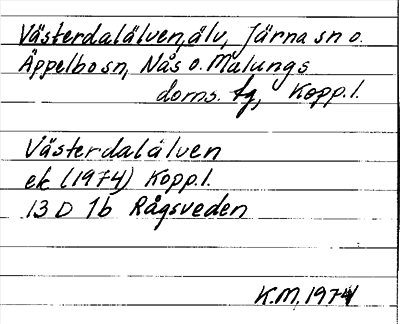 Västerdalälven, älv, Järna sn o.
Äppelbo sn, Nås o. Malungs
doms. tg, Kopp. l.
Västerdalälven
ek (1974) Kopp. l.
13 D 7b Rågsveden
K.M. 1974